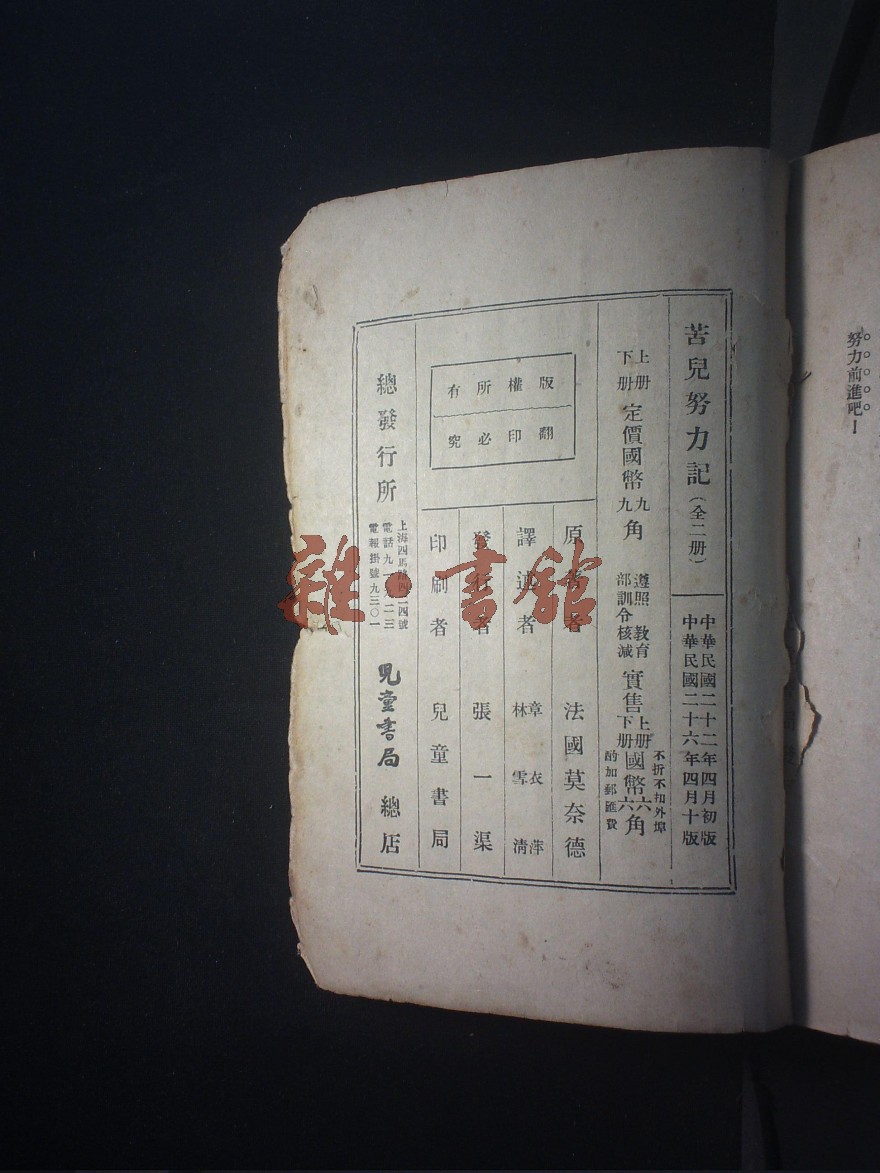 努力前進吧！
苦兒努力記（全二册）
中華民國二十二年四月初版
中華民國二十六年四月十版
上册
下册
定價國幣九角
九
遵照教育
部訓令核減
實售
上册
下册
國幣六角
六
不折不扣外埠
酌加郵匯費
版權所有
翻印必究
原著者　法國莫奈德
譯述者　章衣萍
林雪清
發行者　張一渠
印刷者　兒童書局
總發行所
上海四馬路四二四號
電話九一九二三
電報掛號九三〇一
兒童書局　總店
雜·書館